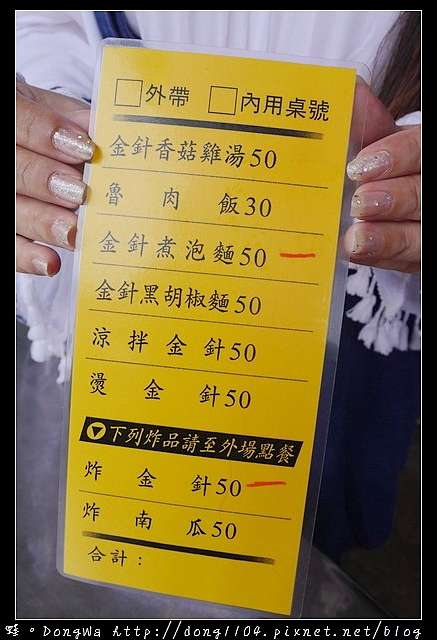 □外帶 □內用桌號
金針香菇雞湯50
魯肉飯30
金針煮泡麵50
金針黑胡椒麵50
涼拌金針50
燙金針50
下列炸品請至外場點餐
炸金針50
炸南瓜50
合計：
蛙。DongWa http://dong1104.pixnet.net/blog